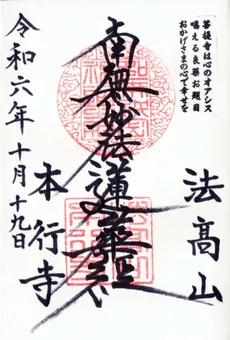 菩提寺は心のオアシス
唱える良薬お題目
おかげさまの心で幸せを
法高山
南無妙法蓮華経
本行寺
令和六年十月十九日